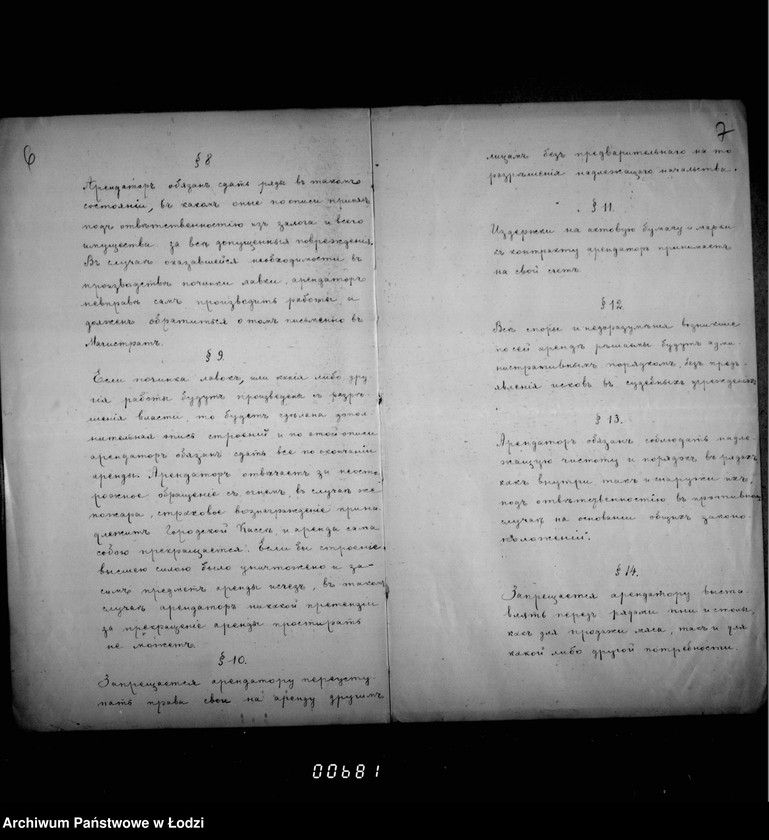 6
§ 8
Арендаторъ обязанъ сдать ряды въ такомъ
состояніи, въ какомъ оные по описи принялъ
подъ отвѣтственностію изъ залога и всего
имущества за всѣ допущенныя поврежденія.
Въ случаѣ оказавшейся необходимости въ
производствѣ починки лавки, арендаторъ
невправѣ самъ производить работы, а
долженъ обратиться о томъ письменно въ
Магистратъ.
§ 9.
Если починка лавокъ, или какія либо дру-
гія работы будутъ произведены съ разрѣ-
шенія власти, то будетъ сдѣлана допол-
нительная опись строеній и по этой описи
арендаторъ обязанъ сдать все по окончаніи
аренды. Арендаторъ отвѣчаетъ за неосто
рожное обращеніе съ огнемъ, въ случаѣ же
пожара, страховое вознагражденіе прина-
длежитъ Городской Кассѣ, и аренда сама
собою прекращается. Если бы строеніе
высшею силою было уничтожено и за-
симъ предметъ аренды исчезъ, въ такомъ
случаѣ арендаторъ никакой претензіи
за прекращеніе аренды простирать
не можетъ.
§ 10.
Запрещается арендатору переусту-
пать права свои на аренду другимъ
7
лицамъ безъ предварительнаго на то
разрѣшенія надлежащаго начальства.
§ 11.
Издержки на актовую бумагу и марки
къ контракту арендаторъ принимаетъ
на свой счетъ.
§ 12.
Всѣ споры и недоразумѣнія возникшіе
по сей арендѣ рѣшаемы будутъ адми-
нистративнымъ порядкомъ, безъ предъ-
явленія исковъ въ судебныхъ учрежденіяхъ
§ 13.
Арендаторъ обязанъ соблюдать надле-
жащую чистоту и порядокъ въ рядахъ
какъ внутри такъ и снаружи ихъ,
подъ отвѣтственностію въ противномъ
случаѣ на основаніи общихъ законо-
положеній.
§ 14.
Запрещается арендатору выста-
влять передъ рядами пни и столы,
какъ для продажи мяса, такъ и для
какой либо другой потребности.
00681
Archiwum Państwowe w Łodzi